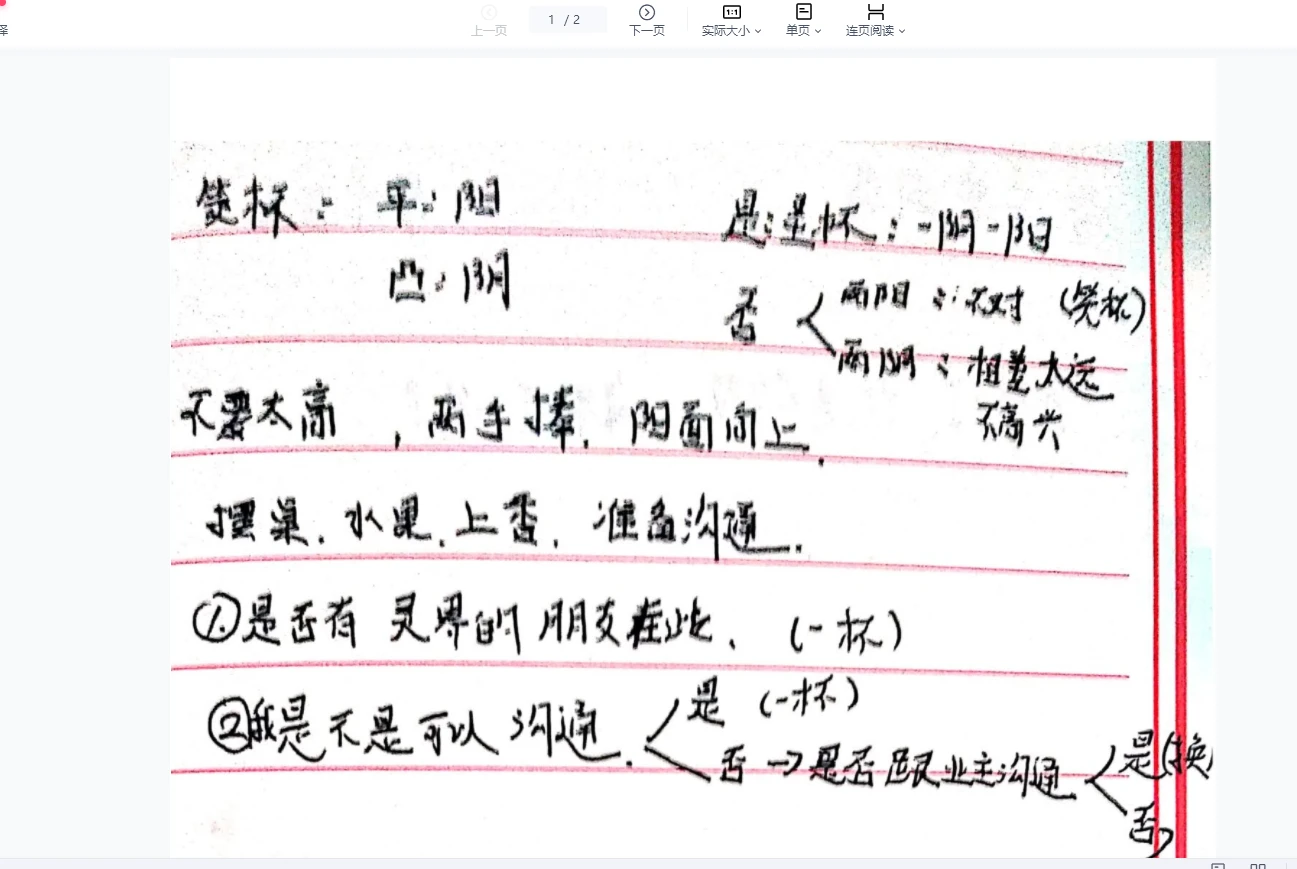 译
上一页
1 / 2
下一页
实际大小
单页
连页阅读
筊杯： 平：阳
凸：阴
是：圣杯：一阴一阳
否
两阳：不对（笑杯）
两阴：相差太远
不高兴
不要太高，两手捧，阳面向上．
摆桌．水果．上香．准备沟通．
①是否有 灵界的朋友在此．（一杯）
②我是不是可以 沟通．
是（一杯）
否→是否跟业主沟通
是(换
否